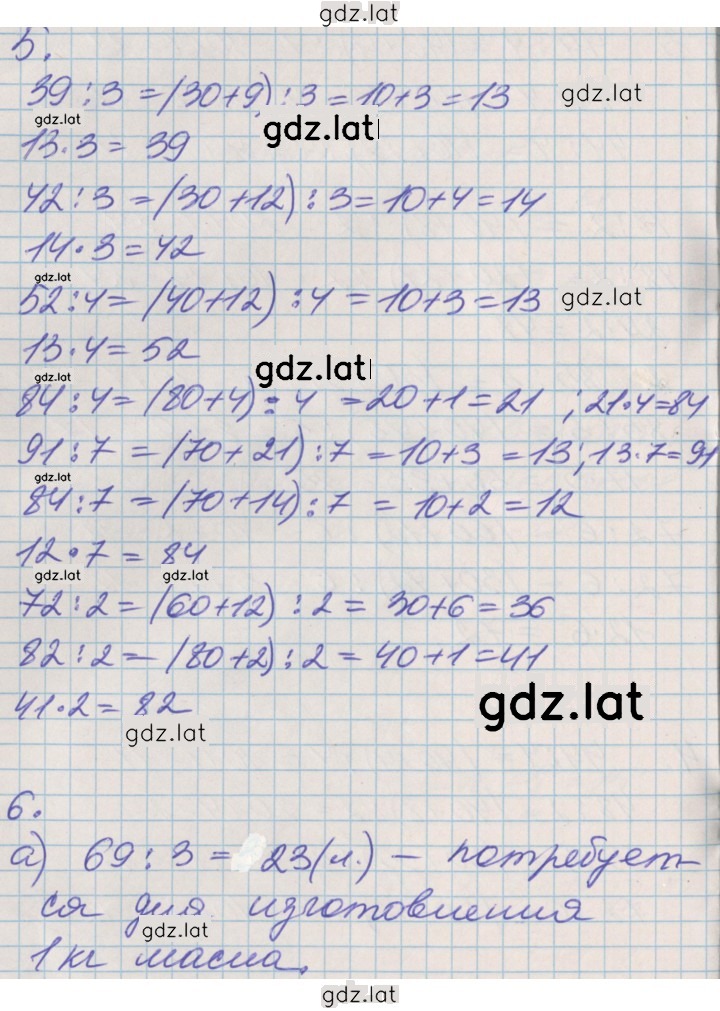 gdz.lat
5.
39 : 3 = (30+9) : 3 = 10+3 = 13
gdz.lat
gdz.lat
gdz.lat
13·3 = 39
42 : 3 = (30+12) : 3 = 10+4 = 14
14·3 = 42
gdz.lat
52 : 4 = (40+12) : 4 = 10+3 = 13
gdz.lat
13·4 = 52
gdz.lat
gdz.lat
84 : 4 = (80+4) : 4 = 20+1 = 21 ; 21·4=84
91 : 7 = (70+21) : 7 = 10+3 = 13; 13·7=91
gdz.lat
84 : 7 = (70+14) : 7 = 10+2 = 12
12·7 = 84
gdz.lat gdz.lat
72 : 2 = (60+12) : 2 = 30+6 = 36
82 : 2 = (80+2) : 2 = 40+1 = 41
41·2 = 82
gdz.lat
gdz.lat
6.
а) 69 : 3 = 23(л.) – потребует-
ся для изготовления
gdz.lat
1 кг масла.
gdz.lat